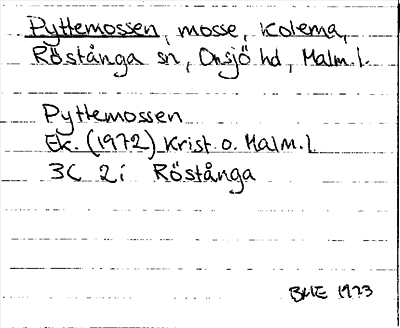 Pyttemossen, mosse, Kolema,
Röstånga sn, Onsjö hd, Malm. l.
Pyttemossen
Ek. (1972) Krist. o. Malm. l
3C 2i Röstånga
1973